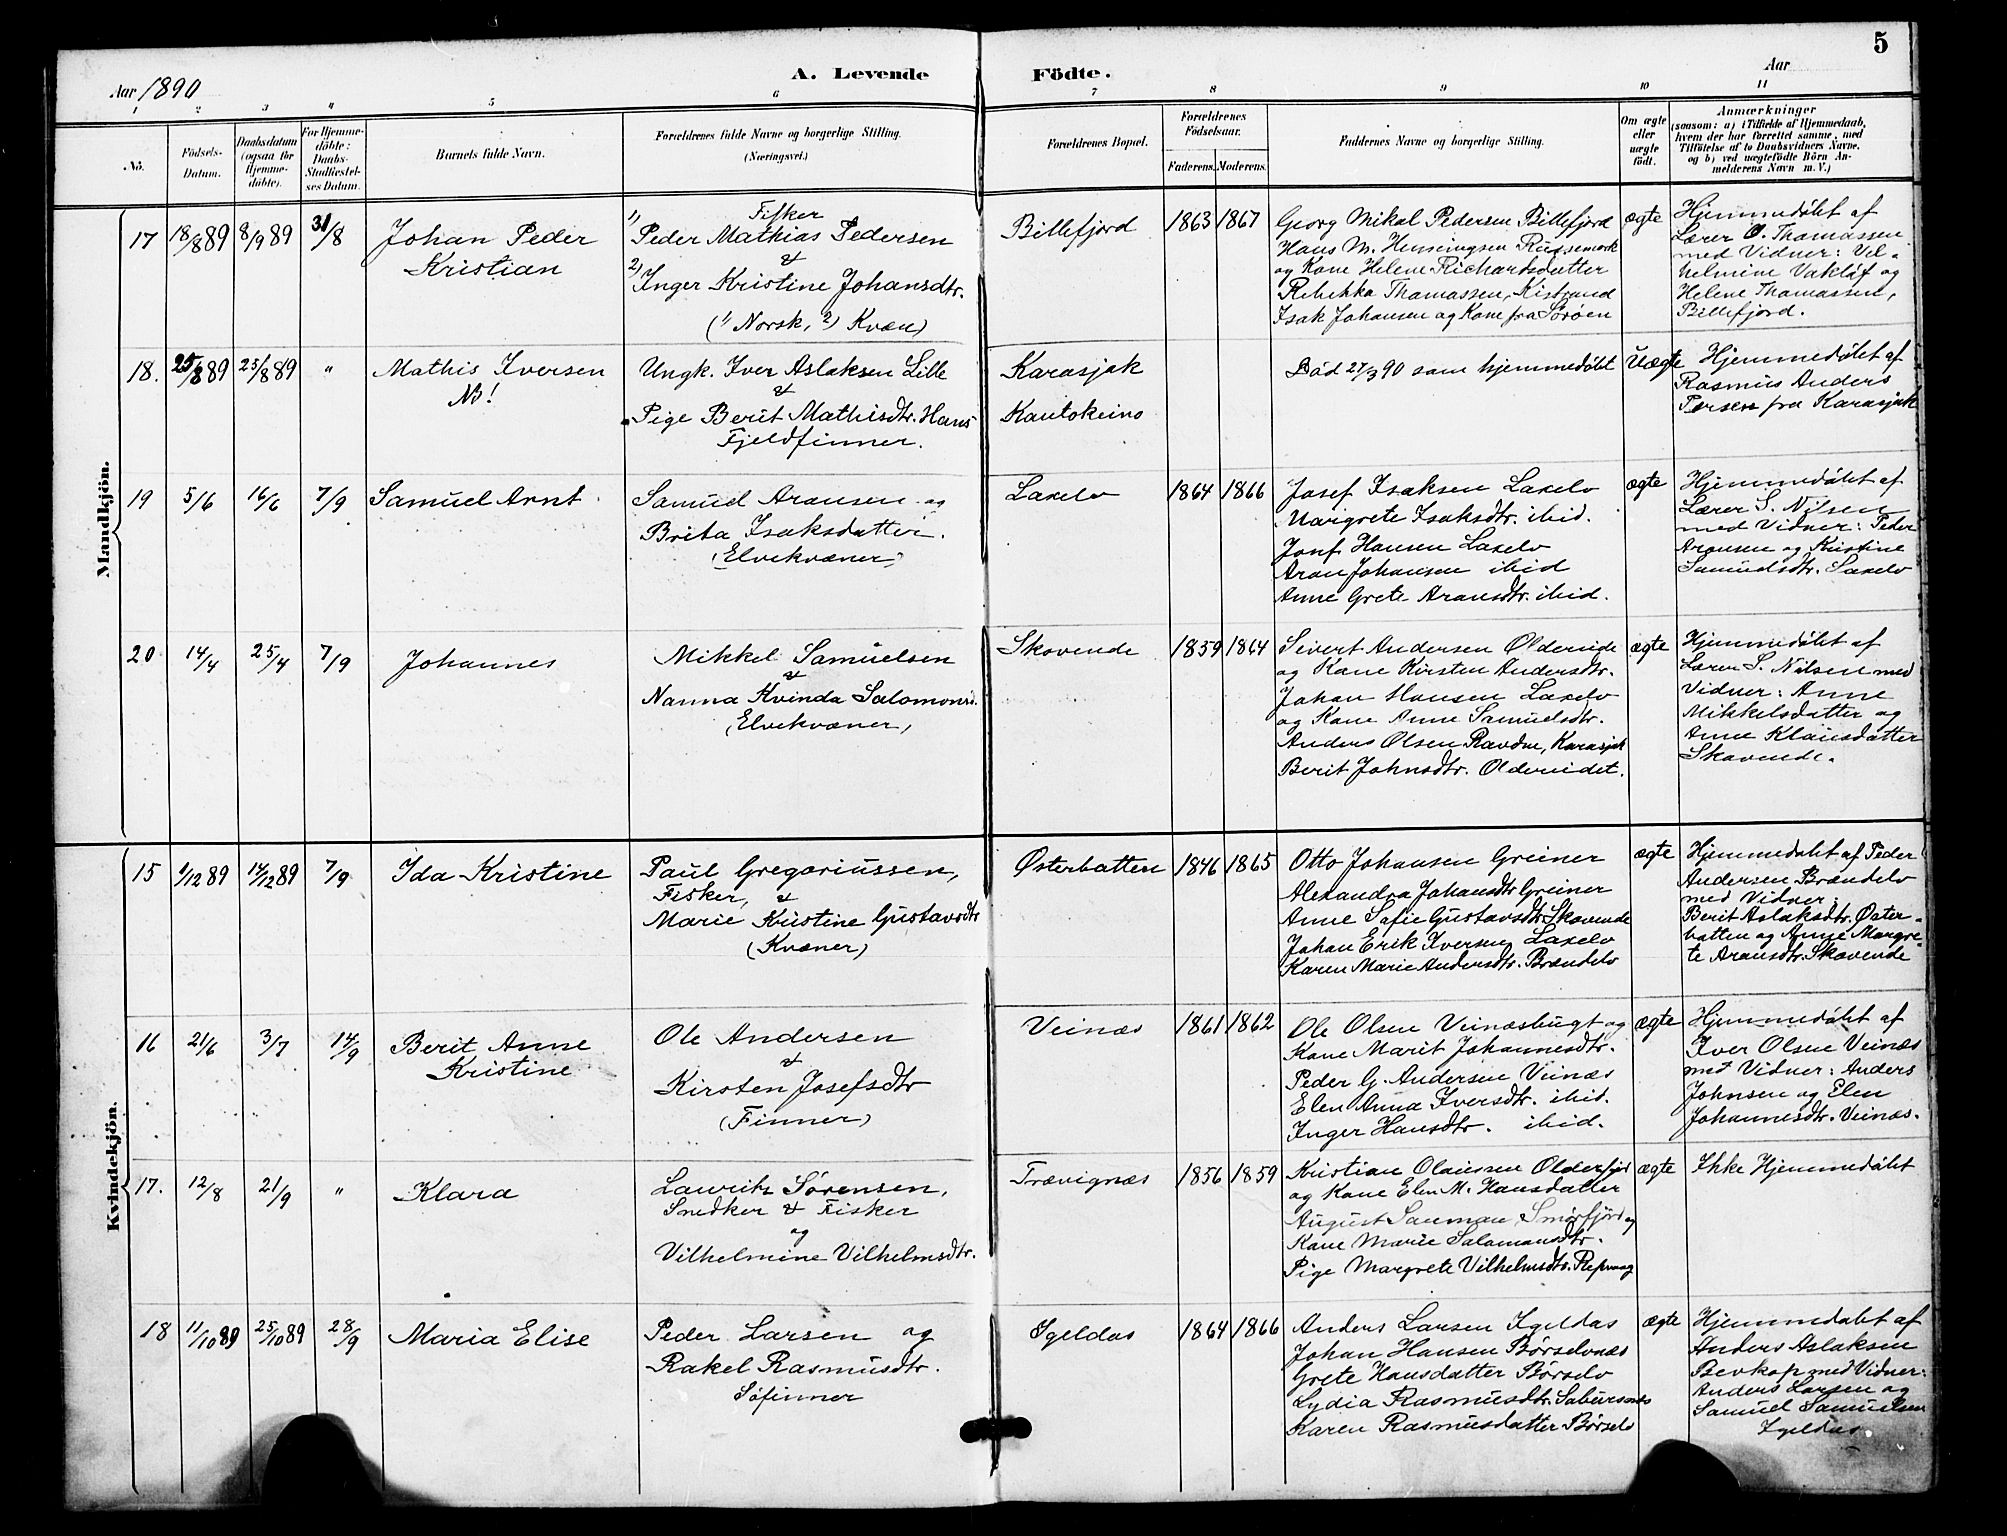 5
A. Levende Födte.
Aar 1890
Aar
1 2 3 " 5 6 7 8 9 10 11
No.
Födsels-
Datum.
Daabsdatum
(ogsaa for
Hjemme-
döbte).
For Hjemme-
döbte:
Daabs-
Stadfæstel-
ses Datum.
Barnets fulde Navn.
Forældrenes fulde Navne og borgerlige Stilling.
(Næringsvei.)
Forældrenes Bopæl.
Forældrenes
Födselsaar.
Faderens. Moderens.
Faddernes Navne og borgerlige Stilling.
Om ægte
eller
uægte
födt.
Anmærkninger
(saasom: a) i Tilfælde af Hjemmedaab,
hvem der har forrettet samme, med
Tilföielse af to Daabsvidners Navne,
og b) ved uægtefödte Börn An-
melderens Navn m. V.)
Mandkjön.
17 18/8 89 8/9 89 31/8
Johan Peder
Kristian
Fisker
1) Peder Mathias Pedersen
&
2) Inger Kristine Johansdtr.
(1) Norsk, 2) Kvæn)
Billefjord
1863 1867
Georg Mikal Pedersen Billefjord
Hans M. Henningsen Russemark
og Kone Helene Richardsdatter
Rebekka Thomassen, Kistrand
Isak Johansen og Kone fra Sørøen
ægte
Hjemmedøbt af
Lærer O. Thomassen
med Vidner: Vil-
helmine Vakløf og
Helene Thomassen,
Billefjord.
18. 25/8 89 25/8 89 "
Mathis Iversen
NB!
Ungk. Iver Aslaksen Lille
&
Pige Berit Mathisdtr. Hans
Fjeldfinner.
Karasjok
Kautokeino
Død 27/3 90 som hjemmedøbt
Uægte
Hjemmedøbt af
Rasmus Anders
Persen fra Karasjok
19 5/6 16/6 7/9
Samuel Arnt
Samuel Aronsen og
Brita Isaksdatter.
(Elvekvæner)
Laxelv
1864 1866
Josef Isaksen Laxelv
Margrete Isaksdtr. ibid.
Josef Hansen Laxelv
Aron Johansen ibid
Anne Grete Aronsdtr. ibid.
ægte
Hjemmedøbt af
Lærer S. Nilsen
med Vidner: Peder
Aronsen og Kristine
Samuelsdtr. Laxelv
20 14/4 25/4 7/9
Johannes
Mikkel Samuelsen
&
Nanna Kvinda Salomonsd.
(Elvekvæner)
Skovende
1859 1864
Sivert Andersen Oldereide
og Kone Kirsten Andersdtr.
Johan Hansen Laxelv
og Kone Anne Samuelsdtr.
Anders Olsen Ravdne, Karasjok
Berit Johnsdtr. Oldereidet.
ægte
Hjemmedøbt af
Lærer S. Nilsen med
Vidner: Anne
Mikkelsdatter og
Anne Klausdatter
Skovende.
Kvindekjön.
15 1/12 89 14/12 89 7/9
Ida Kristine
Paul Gregoriussen,
Fisker, &
Marie Kristine Gustavsdtr
(Kvæner)
Østerbotten
1846 1865
Otto Johansen Greiner
Alexandra Johansdtr Greiner
Anne Sofie Gustavsdtr. Skovende
Johan Erik Iversen Laxelv
Karen Marie Andersdtr. Brændelv
ægte
Hjemmedøbt af Peder
Andersen Brændelv
med Vidner:
Berit Aslaksdtr. Øster-
botten og Anne Margre-
te Aronsdtr. Skovende
16 21/6 3/7 14/9
Berit Anne
Kristine
Ole Andersen
&
Kirsten Josefsdtr
(Finner)
Veinæs
1861 1862
Ole Olsen Veinæsbugt og
Kone Marit Johannesdtr.
Peder G. Andersen Veinæs
Elen Anna Iversdtr. ibid.
Inger Hansdtr. ibid.
ægte
Hjemmedøbt af
Iver Olsen Veinæs
med Vidner: Anders
Johnsen og Elen
Johannesdtr. Veinæs.
17. 12/8 21/9 "
Klara
Laurits Sørensen,
Snedker & Fisker
og
Vilhelmine Vilhelmsdtr.
Trævignæs
1856 1859
Kristian Olaussen Olderfjord
og Kone Elen M. Hansdatter
August Sauman, Smørfjord og
Kone Marie Salamonsdtr.
Pige Margrete Vilhelmsdtr. Repvaag
ægte
Ikke Hjemmedøbt
18 11/10 89 25/10 89 28/9
Maria Elise
Peder Larsen og
Rakel Rasmusdtr.
Søfinner
Igeldas
1864 1866
Anders Larsen Igeldas
Johan Hansen Børselvnæs
Grete Hansdatter Børselv
Lydia Rasmusdtr.
Karen Rasmusdatter Børselv
ægte
Hjemmedøbt af
Anders Aslaksen
Bevkop med Vidner:
Anders Larsen og
Samuel Samuelsen
Igeldas